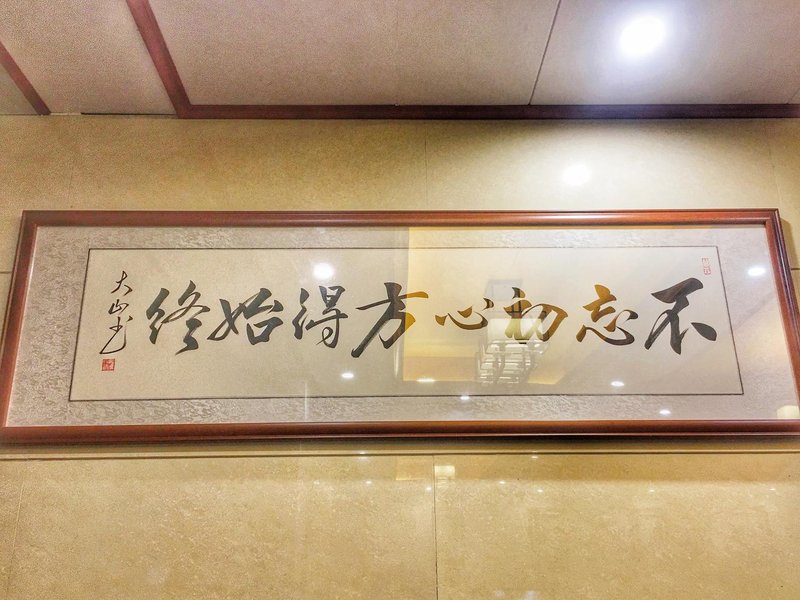 不忘初心方得始终
大山书